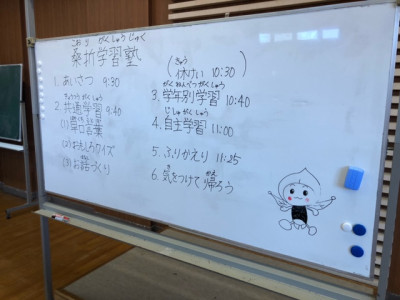 こおりがくしゅうじゅく
桑折学習塾
1. あいさつ 9:30
きょうつうがくしゅう
2. 共通学習 9:40
(2) おもしろクイズ
(3) お話づくり
きゅう
(休けい 10:30)
がくねんべつがくしゅう
3. 学年別学習 10:40
じしゅがくしゅう
4. 自主学習 11:00
5. ふりかえり 11:25
き
6. 気をつけて 帰ろう